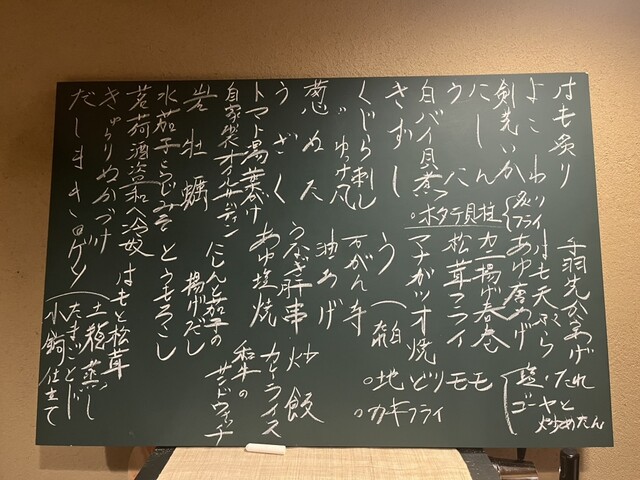 はも炙り
よこわ
剣先いか
にしん
うに
白バイ貝煮
きずし
くじら刺し
〃 ゆっけ風
葱ぬた
うざく
トマト湯葉がけ
自家製オイルサーディン
岩牡蠣
水茄子
茗荷酒盗和へ冷奴
きゅうりぬかづけ
だしまき
手羽先からあげ
塩・たれ
ゴーヤと
炒めたん
はも天ぷら
あゆ唐あげ
カニ揚げ春巻
松茸フライ
○ホタテ貝柱
炙り
フライ
マナガツオ焼
う
粕
万がん寺
油あげ
うなぎ肝串
あゆ塩焼
にしんと茄子の
揚げだし
とうもろこし
はもと松茸
土瓶蒸し
たまごとじ
小鍋仕立て
○地どりモモ
○カキフライ
炒飯
カレーライス
和牛の
サンドウィッチ